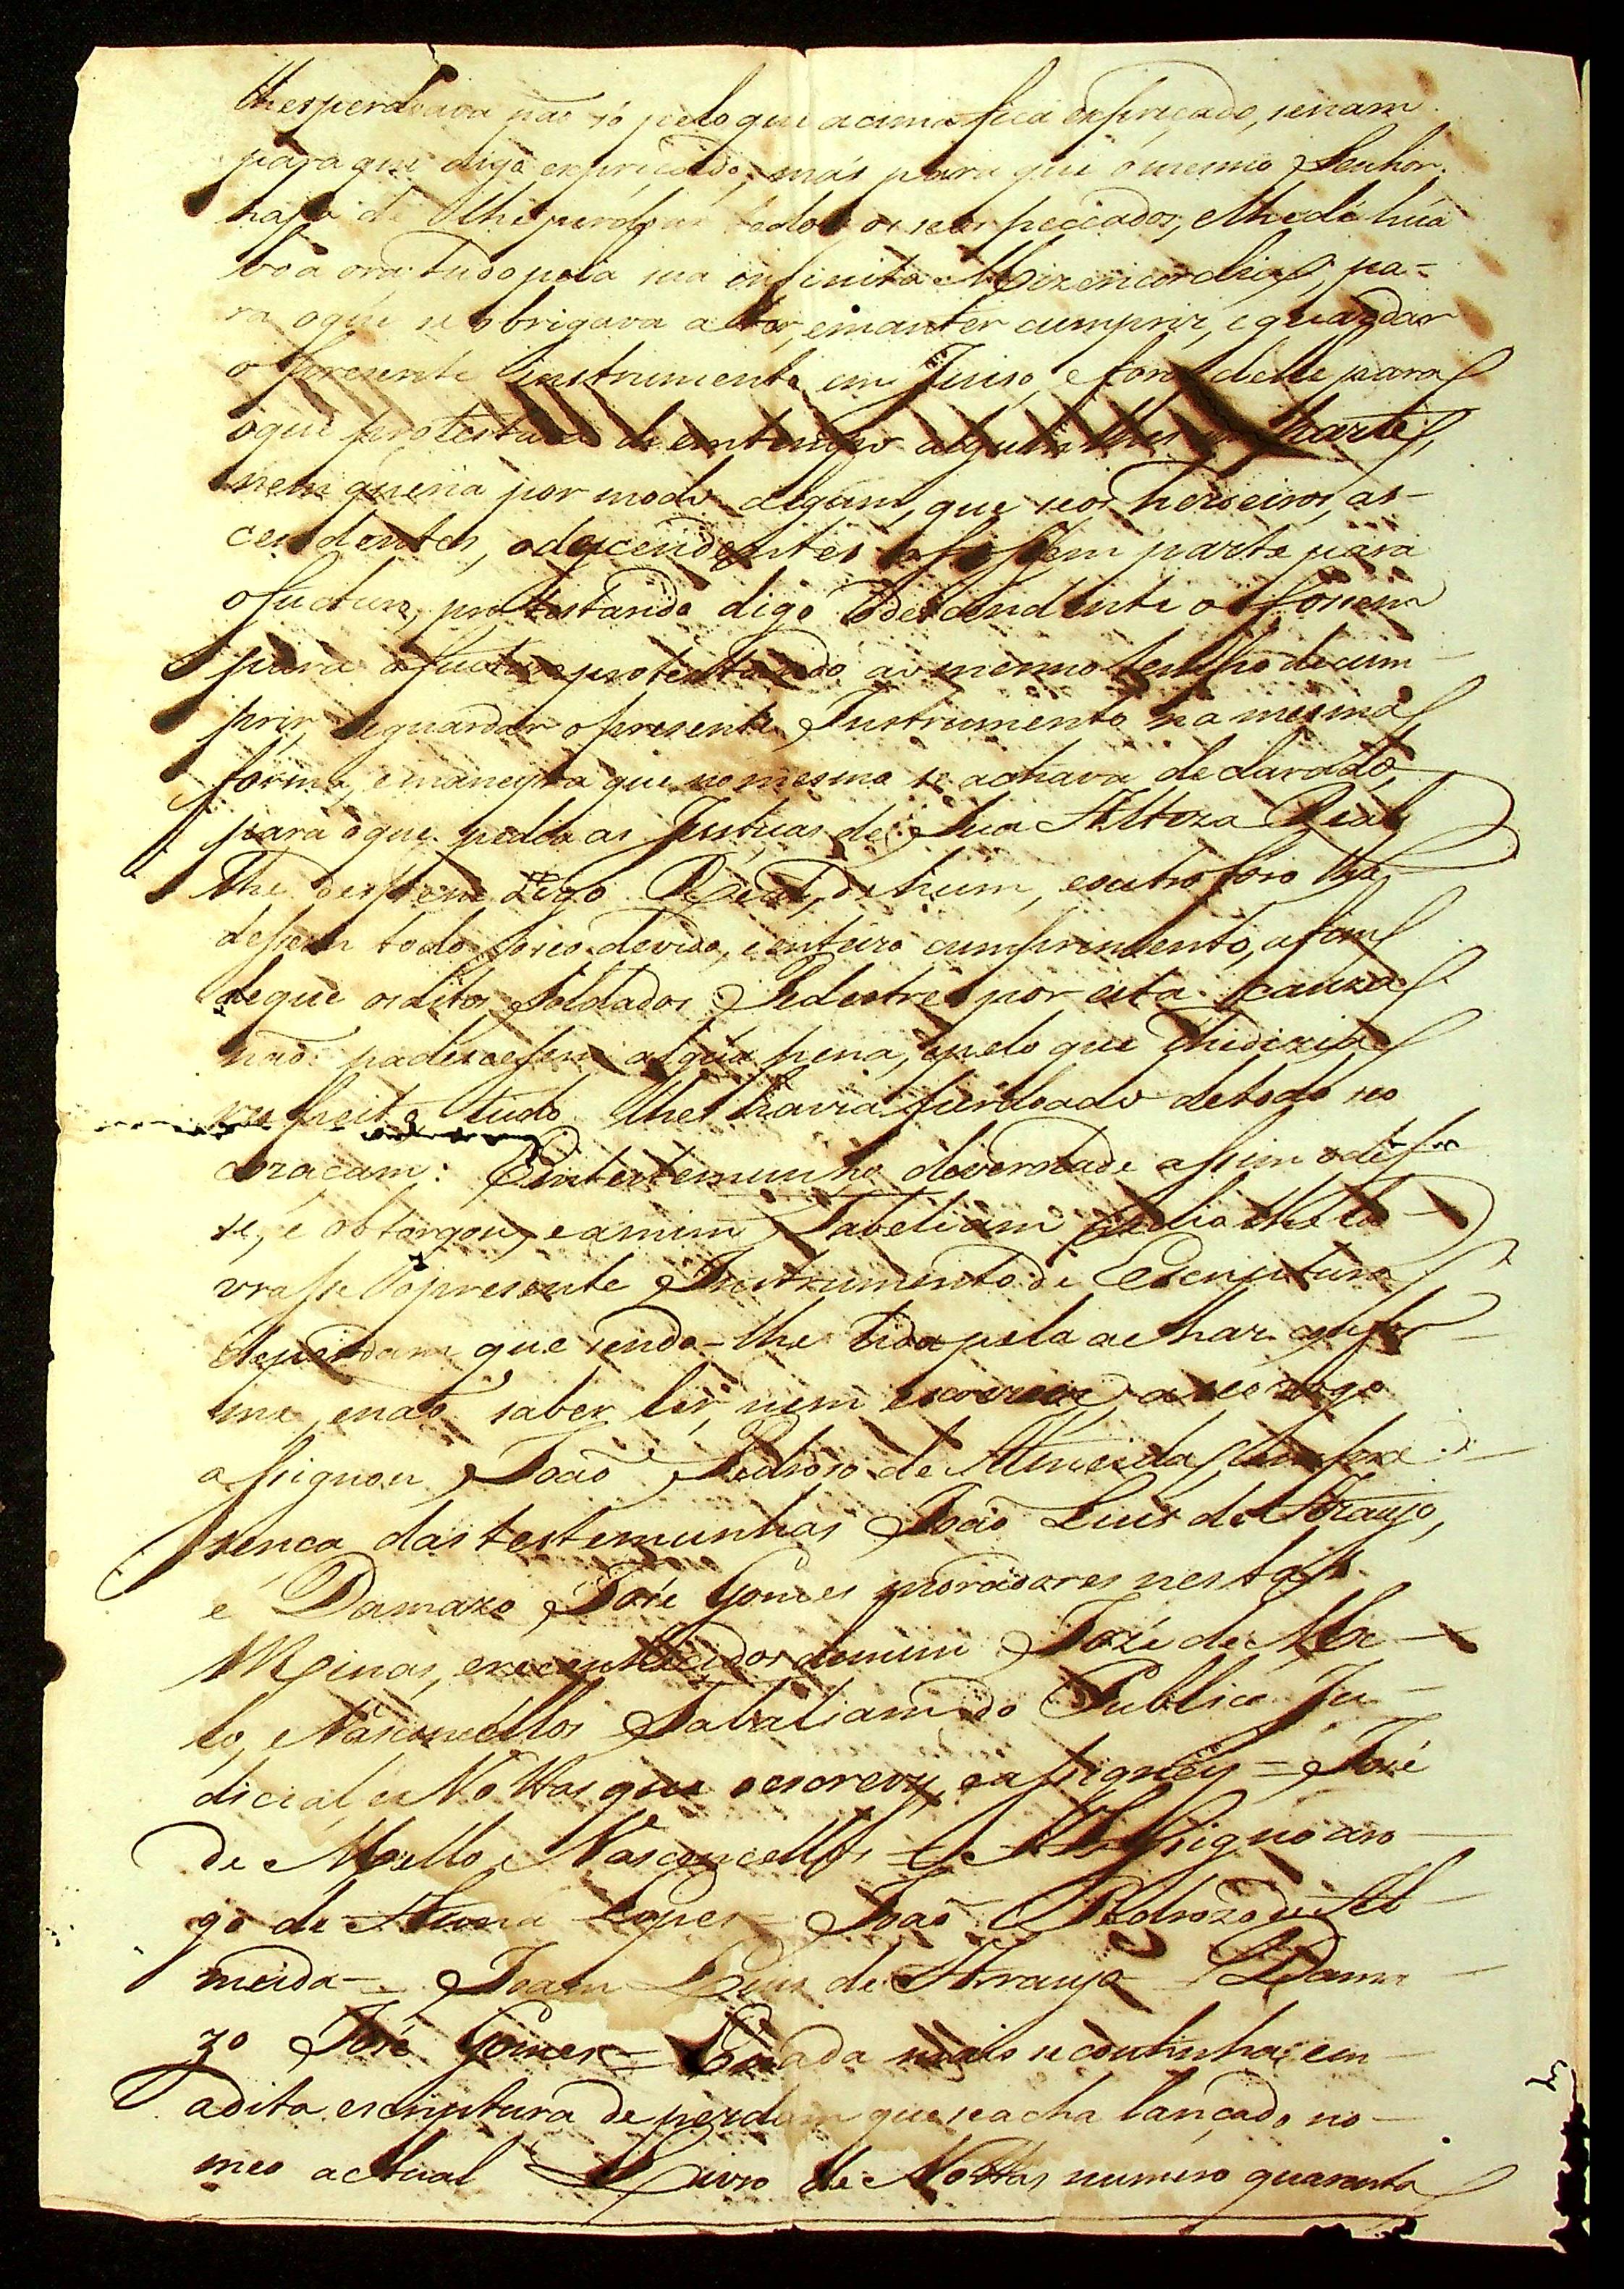 lhesperdoava nao só pelo que acima fica expreçado, senam
para que digo expreçado, más para que o mesmo Senhor
haja de lhe perdoar todos os seos peccados, e lhe dê húa
boa ora tudo pela sua infinita Mizericordia, pa-
ra oque se obrigava a ter, emanter cumprir, e guardar
o presente Instrumento em Juiso, e fora delle para
oque protestava de emtempo algum lhes Parte,
nem queria por modo algum, que seos herdeiros, as-
cendentes, e descendentes o fossem parte para
o fucturo, protestando digo e descendente o fossem
para o fucturo protestando ao mesmo tempo de cum-
prir, e guardar o presente Instrumento na mesma
forma, e maneyra que no mesmo se achava declarado,
para oque pedia as Justiças de Sua Alteza Real
lhe dessem digo Real, de hum, e outro foro lhe
dessem todo o devido, e inteiro cumprimento, a fim
deque os ditos Soldados Pedestres por esta cauza
não padescessem algúa pena, pelo que lhe dizia
respeito tudo lhes havia perdoado detodo seo
coraçam: Emtestemunho deverdade assim o disse
se, e obtorgou, e a mim Tabeliam pedio lhe la-
vrasse o presente Instrumento de Escriptura
deperdam, que sendo-lhe lida pela achar confor-
me, e nao saber ler, nem escrever, a seo rogo
assignou João Pedrozo de Almeida com pre-
senca das testemunhas João Luis de Araujo,
e Damazo José Gomes moradores nestas
Minas, e reconhecidos demim José de Me-
lo, e Vasconcellos Tabaliam do Publico Ju-
dicial, e Nottas que o escrevy, e assigney = José
de Mello, e Vasconcellos = Assigno aro-
go de Anna Lopes = Joaõ Pedrozo de Al-
meida = Joam Luis de Arraujo = Dama-
zo José Gomes = Enada mais se continha em
a dita escriptura de perdam que se acha lançada no
meo actual Livro de Nottas numero quarenta